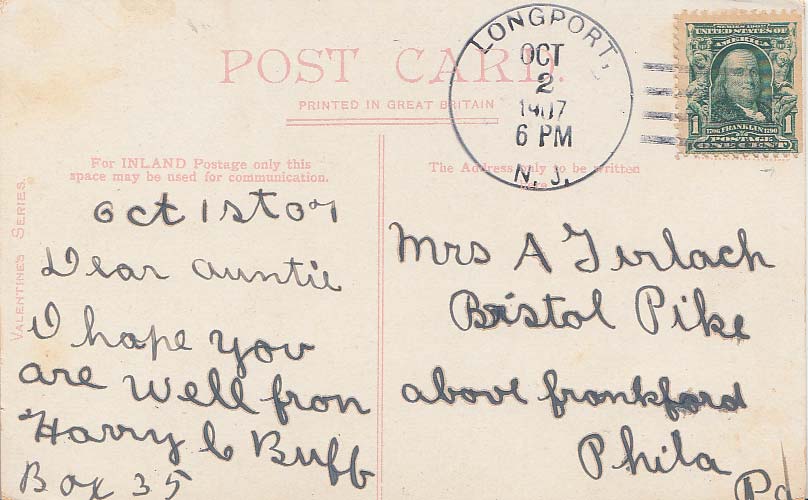 POST CARD.
PRINTED IN GREAT BRITAIN
LONGPORT,
OCT
2
1907
6 PM
N. J.
SERIES 1902
UNITED STATES OF
AMERICA
1 1
1706 FRANKLIN 1790
POSTAGE
ONE CENT
VALENTINE'S SERIES.
For INLAND Postage only this
space may be used for communication.
The Address only to be written
here
Oct 1st 07
Dear Auntie
I hope you
are well fron
Harry C Buff
Box 35
Mrs A Gerlach
Bristol Pike
above frankford
Phila
Pa